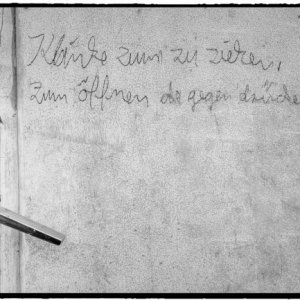 Klinke zum zu ziehen,
zum öffnen da gegen drücke